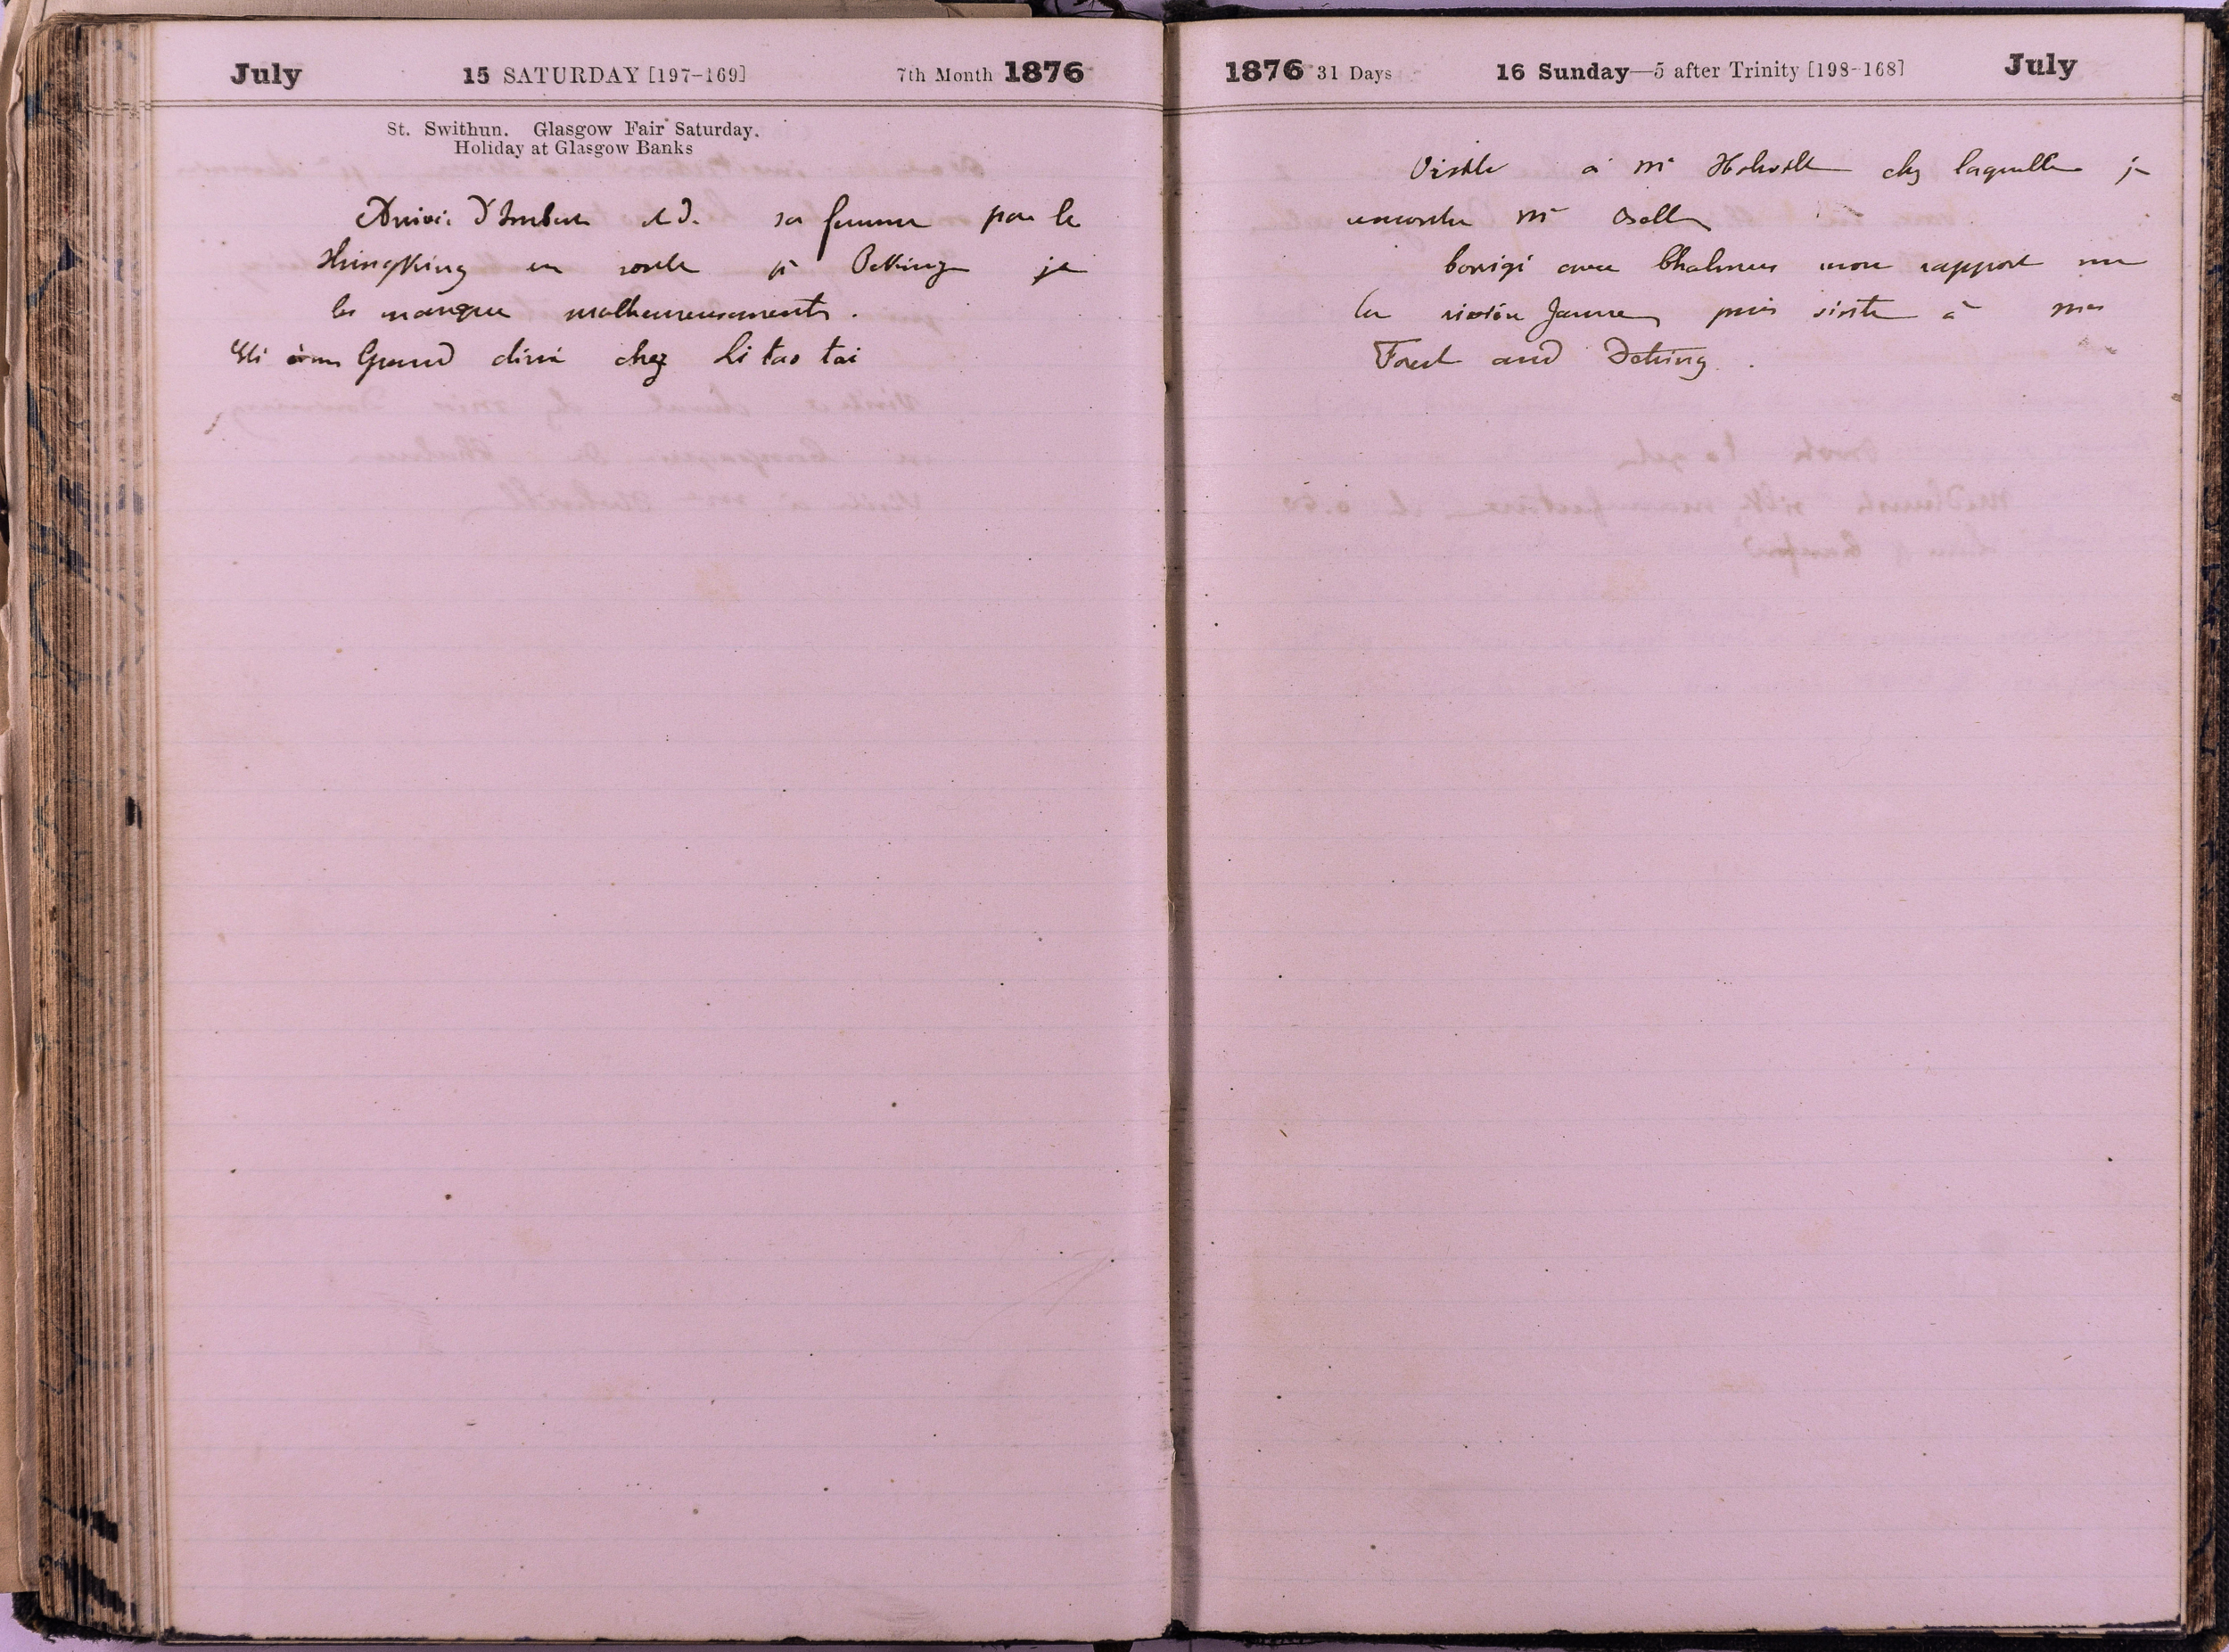 July 15 SATURDAY [197-169] 7th Month 1876
St. Swithun. Glasgow Fair Saturday.
Holiday at Glasgow Banks
Arrivée d'Imbert et d. sa femme par le
Hungking en route pr Peking je
les manque malheureusement.
Été à un Grand diné chez Li tao tai
1876 31 Days 16 Sunday—5 after Trinity [198-168] July
Visite à Me chez laquelle je
rencontre Me
Corrigé avec Chalmers mon rapport sur
la rivière Jaune puis visite à mes
Forest and Detring.